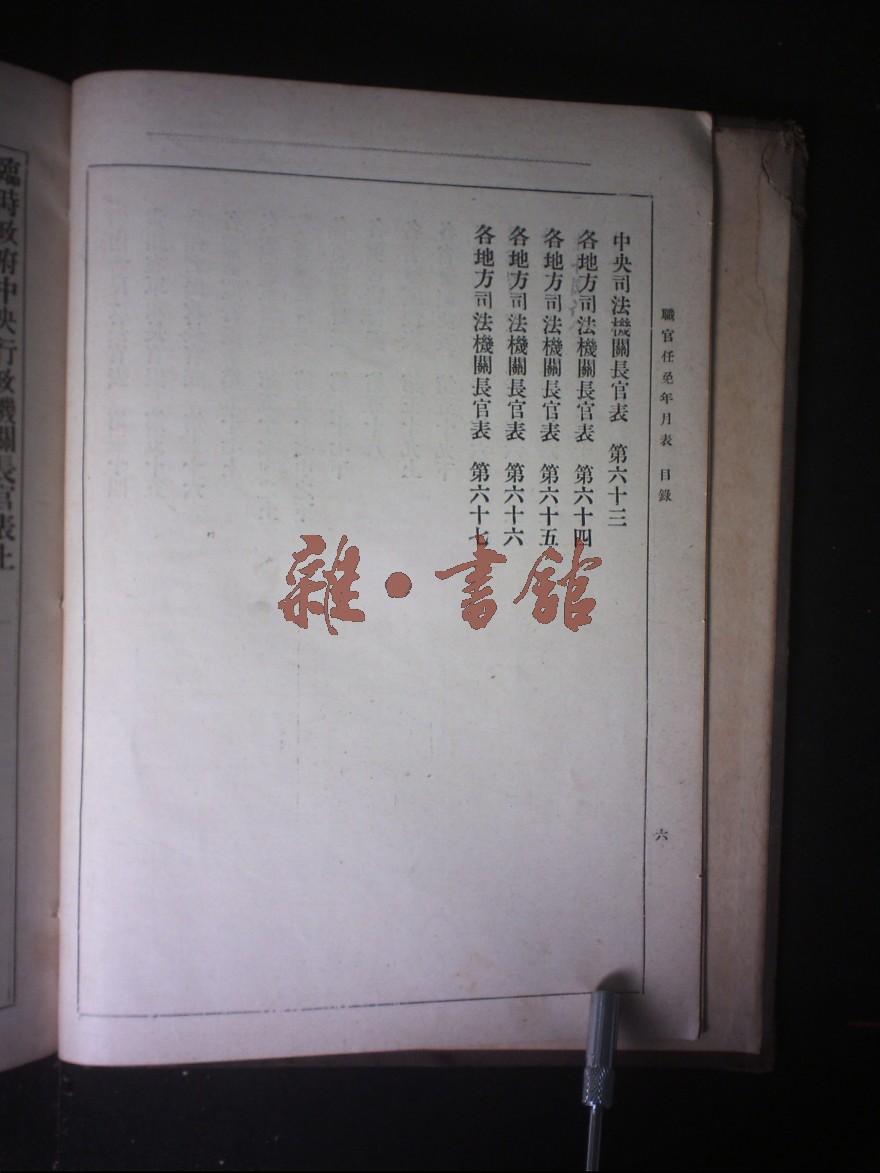 職官任免年月表　目錄
六
中央司法機關長官表　第六十三
各地方司法機關長官表　第六十四
各地方司法機關長官表　第六十五
各地方司法機關長官表　第六十六
各地方司法機關長官表　第六十七
雜·書館
臨時政府中央行政機關長官表上